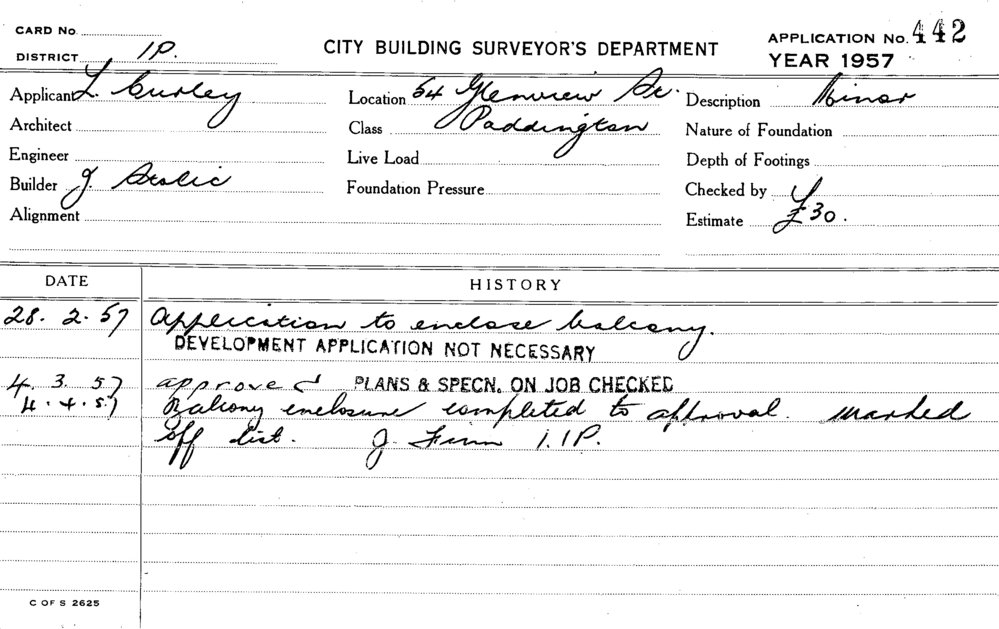 CARD No.
DISTRICT 1P.
CITY BUILDING SURVEYOR'S DEPARTMENT
APPLICATION No. 442
YEAR 1957
Applicant L. Curley
Location 64 Glenview St.
Description Minor
Architect
Class Paddington
Nature of Foundation
Engineer
Live Load
Depth of Footings
Builder J. Stolic
Foundation Pressure
Checked by
Alignment
Estimate £30.
DATE HISTORY
28. 2. 57 Application to enclose balcony.
DEVELOPMENT APPLICATION NOT NECESSARY
4. 3. 57 approved PLANS & SPECN. ON JOB CHECKED
4. 4. 57 Balcony enclosure completed to approval. Marked
off list. J. Finn 1.1P.
C OF S 2625